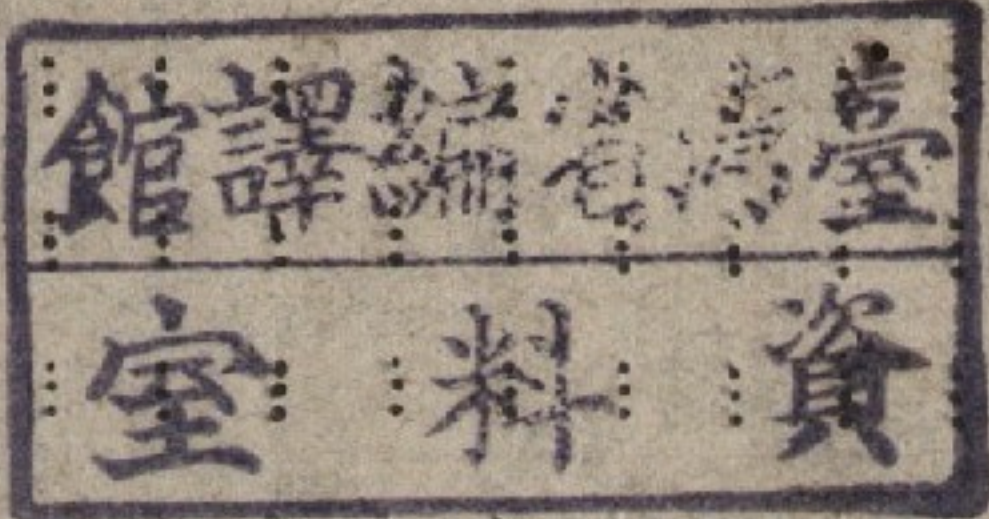 臺灣省編譯館
資料室